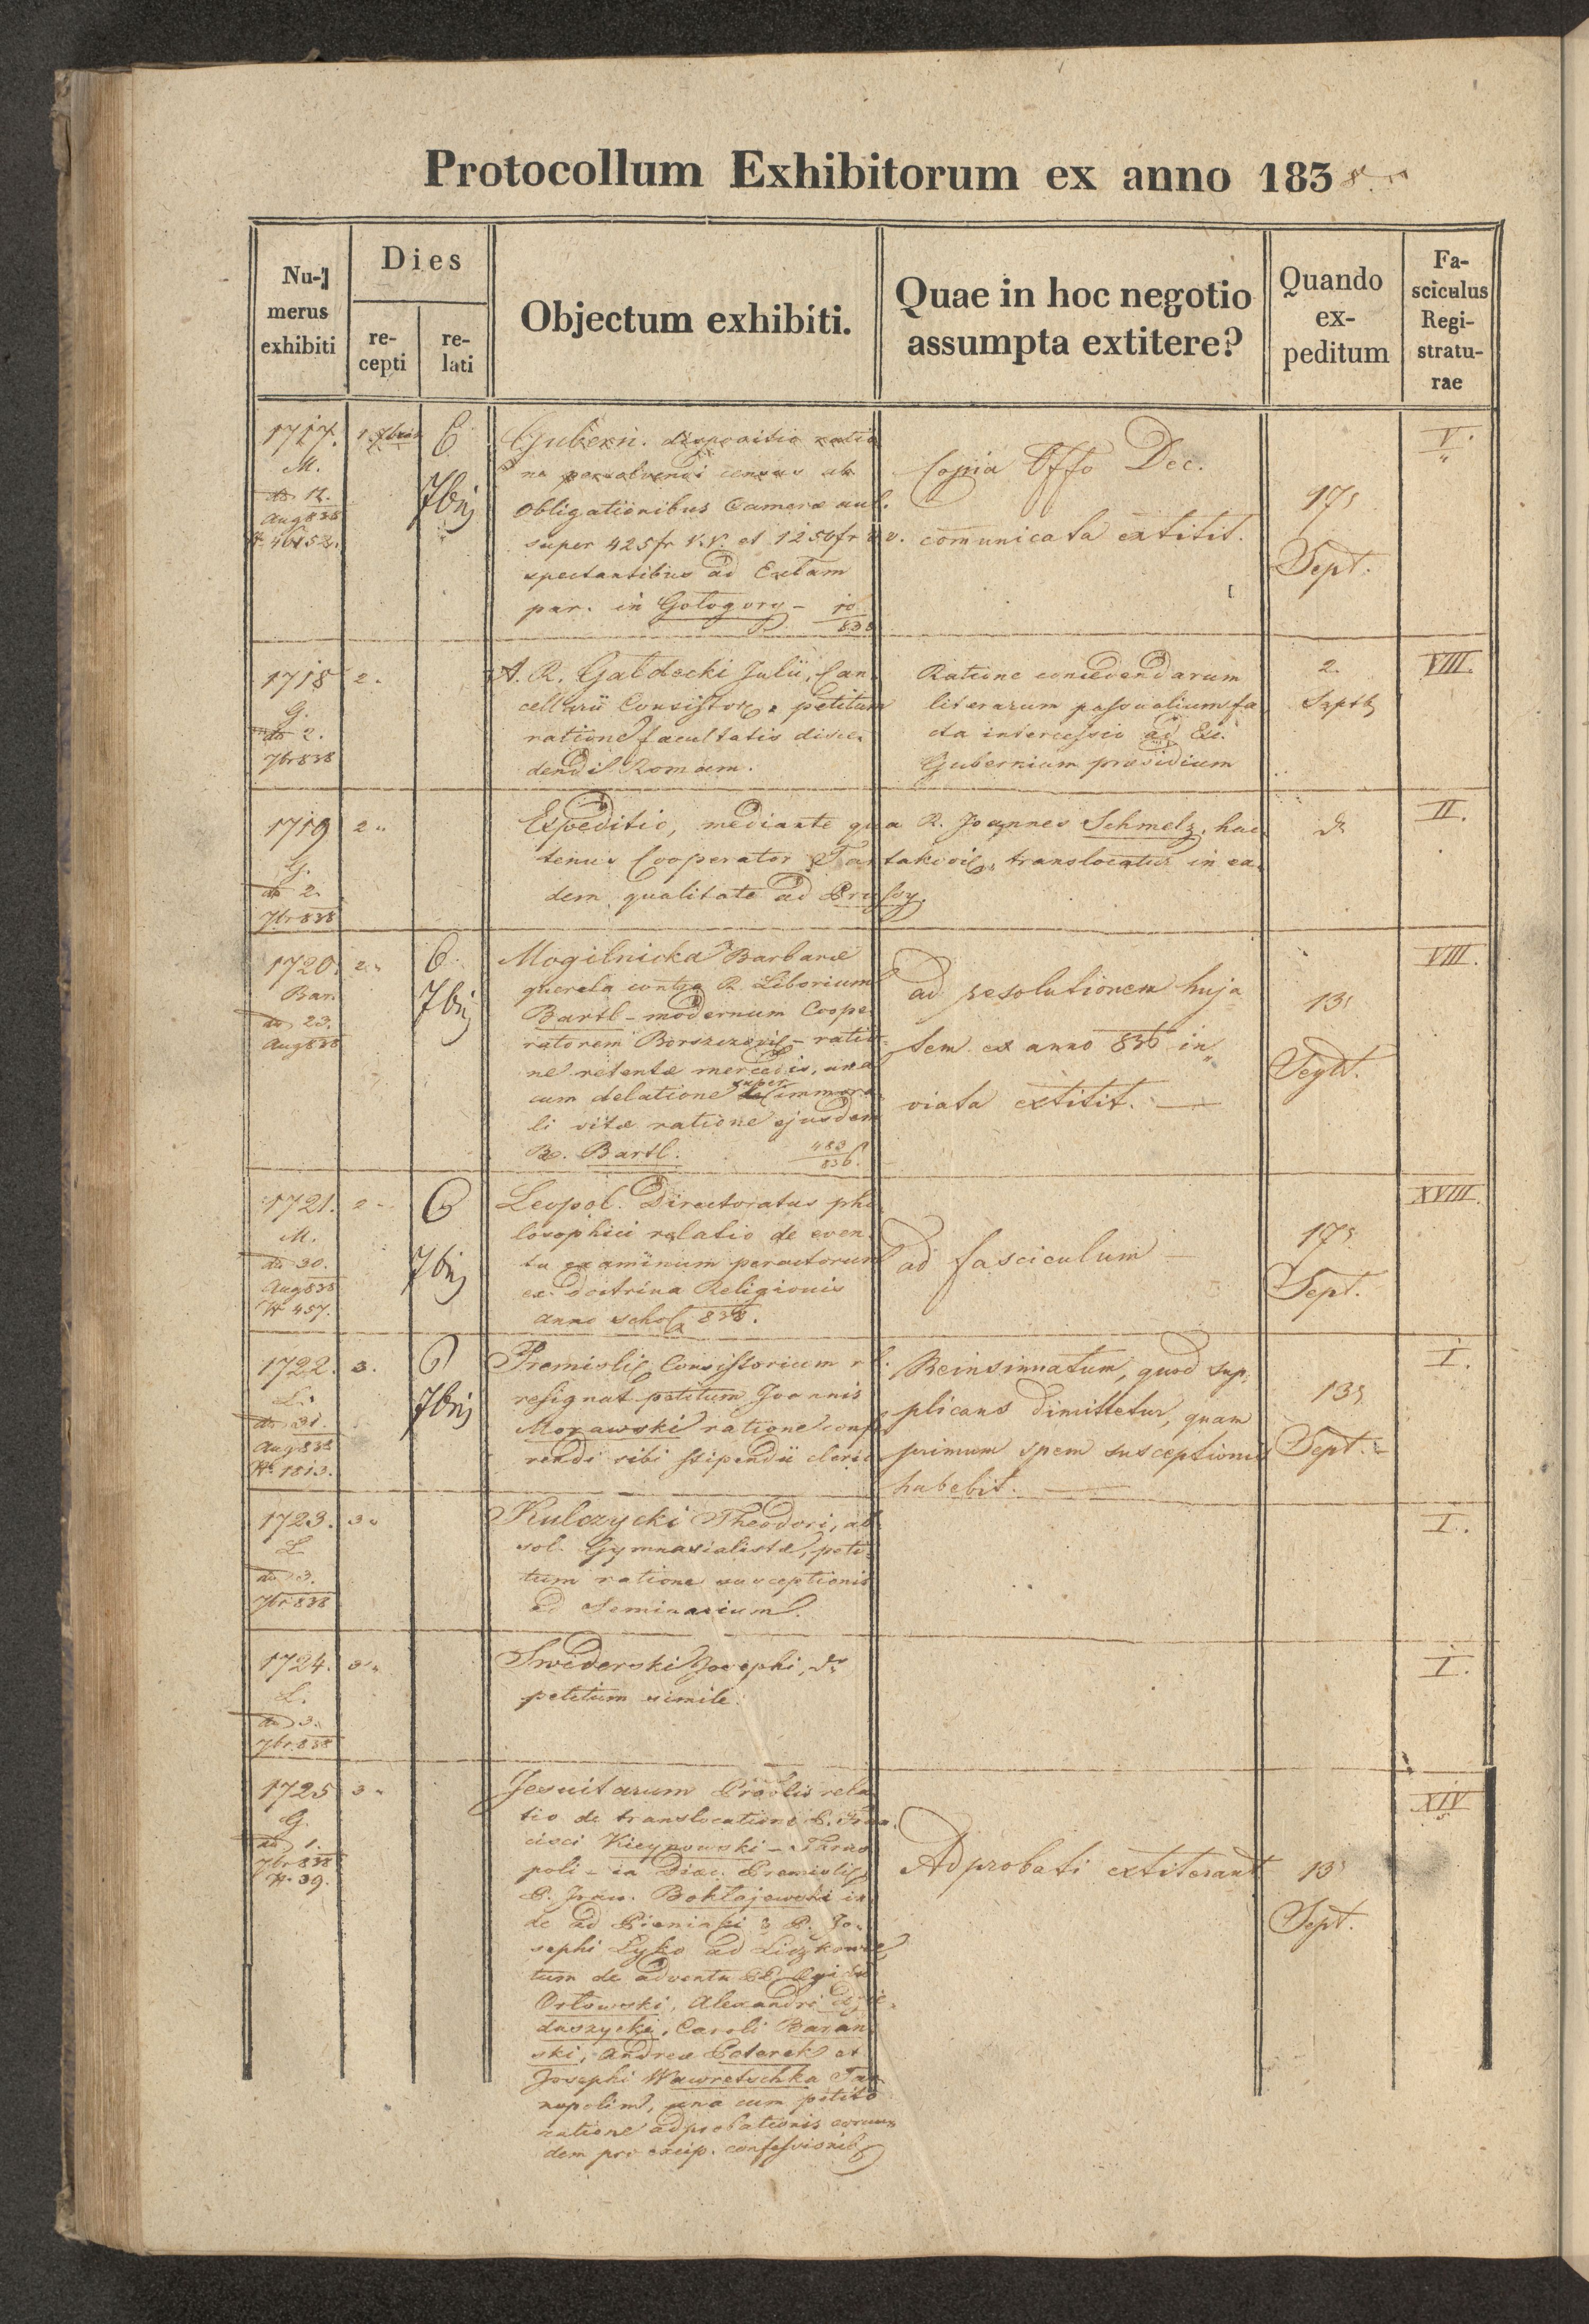 Protocollum Exhibitorum ex anno 1838.
Nu-
merus
exhibiti
Dies
re-
cepti
re-
lati
Objectum exhibiti.
Quae in hoc negotio
assumpta extitere?
Quando
ex-
peditum
Fa-
sciculus
Regi-
stratu-
rae
1717.
M.
dto 12.
Aug 838
1 7bris
6
7bris
Gubern. dispositio ratio
ne persolvendi census ab
obligationibus Cameræ aul.
super 425 fr V.V. et 1250 fr v.v.
spectantibus ad Ecclam
par. in Gologory - 10
838
Copia Offo Dec.
comunicata extitit.
17
Sept.
V.
1718
G.
dto 2.
7br 838
2.
A. R. Galdecki Julii, Can
cellarii Consistor. petitum
ratione facultatis disce-
dendi Romam.
Ratione concedendarum
literarum passualium fa
cta intercessio ad Exc.
Gubernium præsidium
2.
Septb
VIII.
1719
G.
dto 2.
7br 838
2.
Expeditio, mediante qua R. Joannes Schmelz, hac
tenus Cooperator Tartakovien, translocatus in ea-
dem qualitate ad Brussy.
dto
II.
1720.
Bar.
dto 23.
Aug 838
2.
6.
7bris
Mogilnicka Barbaræ
querela contra R. Liborium
Bartl - modernum Coope-
ratorem Borszczovien - ratio-
ne retentæ mercedis, una
cum delatione super immora
li vitæ ratione ejusdem
R. Bartl. 483
836.
ad resolutionem huja
tem ex anno 836 in
viata extitit.
13
Sept.
VIII.
1721.
M.
dto 30.
Aug 838
N 457.
2.
6
7bris
Leopol. Directoratus phi
losophici relatio de even
tu examinum peractorum
ex doctrina Religionis
anno schol 838.
ad fasciculum
17
Sept.
XVIII.
1722.
L.
dto 31.
Aug 838
N 1813.
3.
6
7bris
Premislien Consistorium
resignat petitum Joannis
Morawski ratione confe
rendi sibi stipendii cleric
Reinsinuatum, quod sup-
plicans dimittetur, quam
primum spem susceptionis
habebit.
13
Sept.
I.
1723.
L
dto 3.
7br 838
3.
Kulczycki Theodori, ab
sol. Gymnasialistæ, peti-
tum ratione susceptionis
ad Seminarium.
I.
1724.
L.
dto 3.
7br 838
3.
Swiderski Josephi, dto
petitum simile.
I.
1725
G.
dto 1.
7br 838
N 39.
3.
Jesuitarum Præplis rela
tio de translocatione P. Fran-
cisci Kieynowski - Tarno
poli - in Diæc. Premislien
P. Fran. Bokłajewski in
de ad Pieniaki & P. Jo-
sephi Lyko ad Liczkowce
tum de adventu PP. Egidii
Orłowski, Alexandri Dzie-
duszycki, Caroli Baran
ski, Andreæ Peterek et
Josephi Wawretschka Tar
nopolim, una cum petito
ratione adprobationis eorum
dem pro excip. confessionib
Adprobati extiterant
13
Sept.
XIV